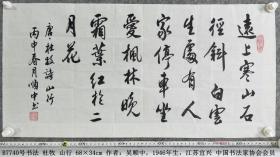 遠上寒山石
徑斜白雲
生處有人
家停車坐
愛楓林晚
霜葉紅於二
月花
唐杜牧詩山行
丙申春月順中书
B7740号书法 杜牧 山行 68×34cm 作者：吴顺中，1946年生，江苏宜兴 中国书法家协会会员